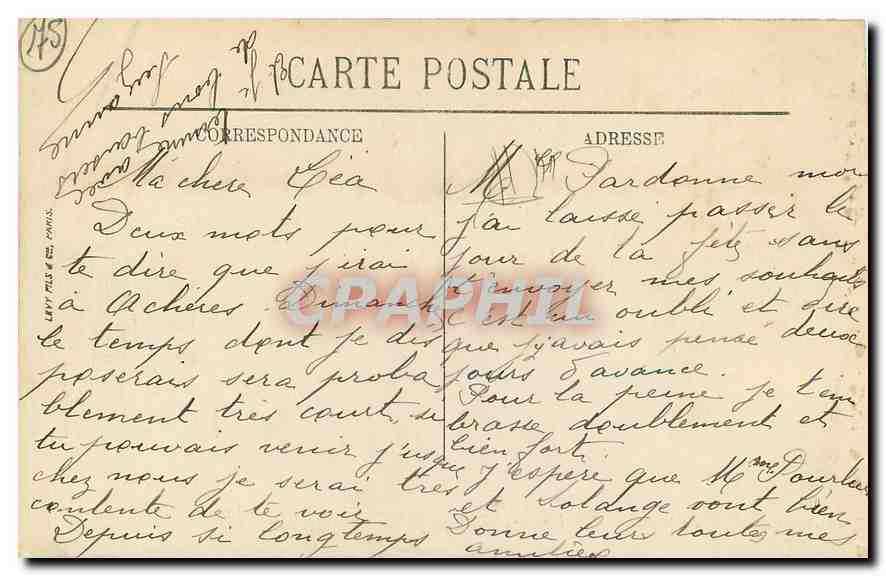 175
CARTE POSTALE
CORRESPONDANCE
ADRESSE
LEVY FILS & Cie, PARIS.
Ma chère Léa
Deux mots pour
te dire que j'irai
à Achères Dimanche
le temps dont je dis
poserais sera proba
blement très court, si
tu pouvais venir j'usque
chez nous je serai très
contente de te voir
Depuis si longtemps
Pardonne moi
j'ai laissé passer le
jour de la fête sans
t'envoyer mes souhaits
c'est un oubli et dire
que j'avais pensé deux
jours d'avance.
Pour la peine je t'em
brasse doublement et
bien fort.
J'espère que Mme
et Solange vont bien
Donne leur toutes mes
amitiés
de
tous
baisers
Suzanne
CPAPHIL